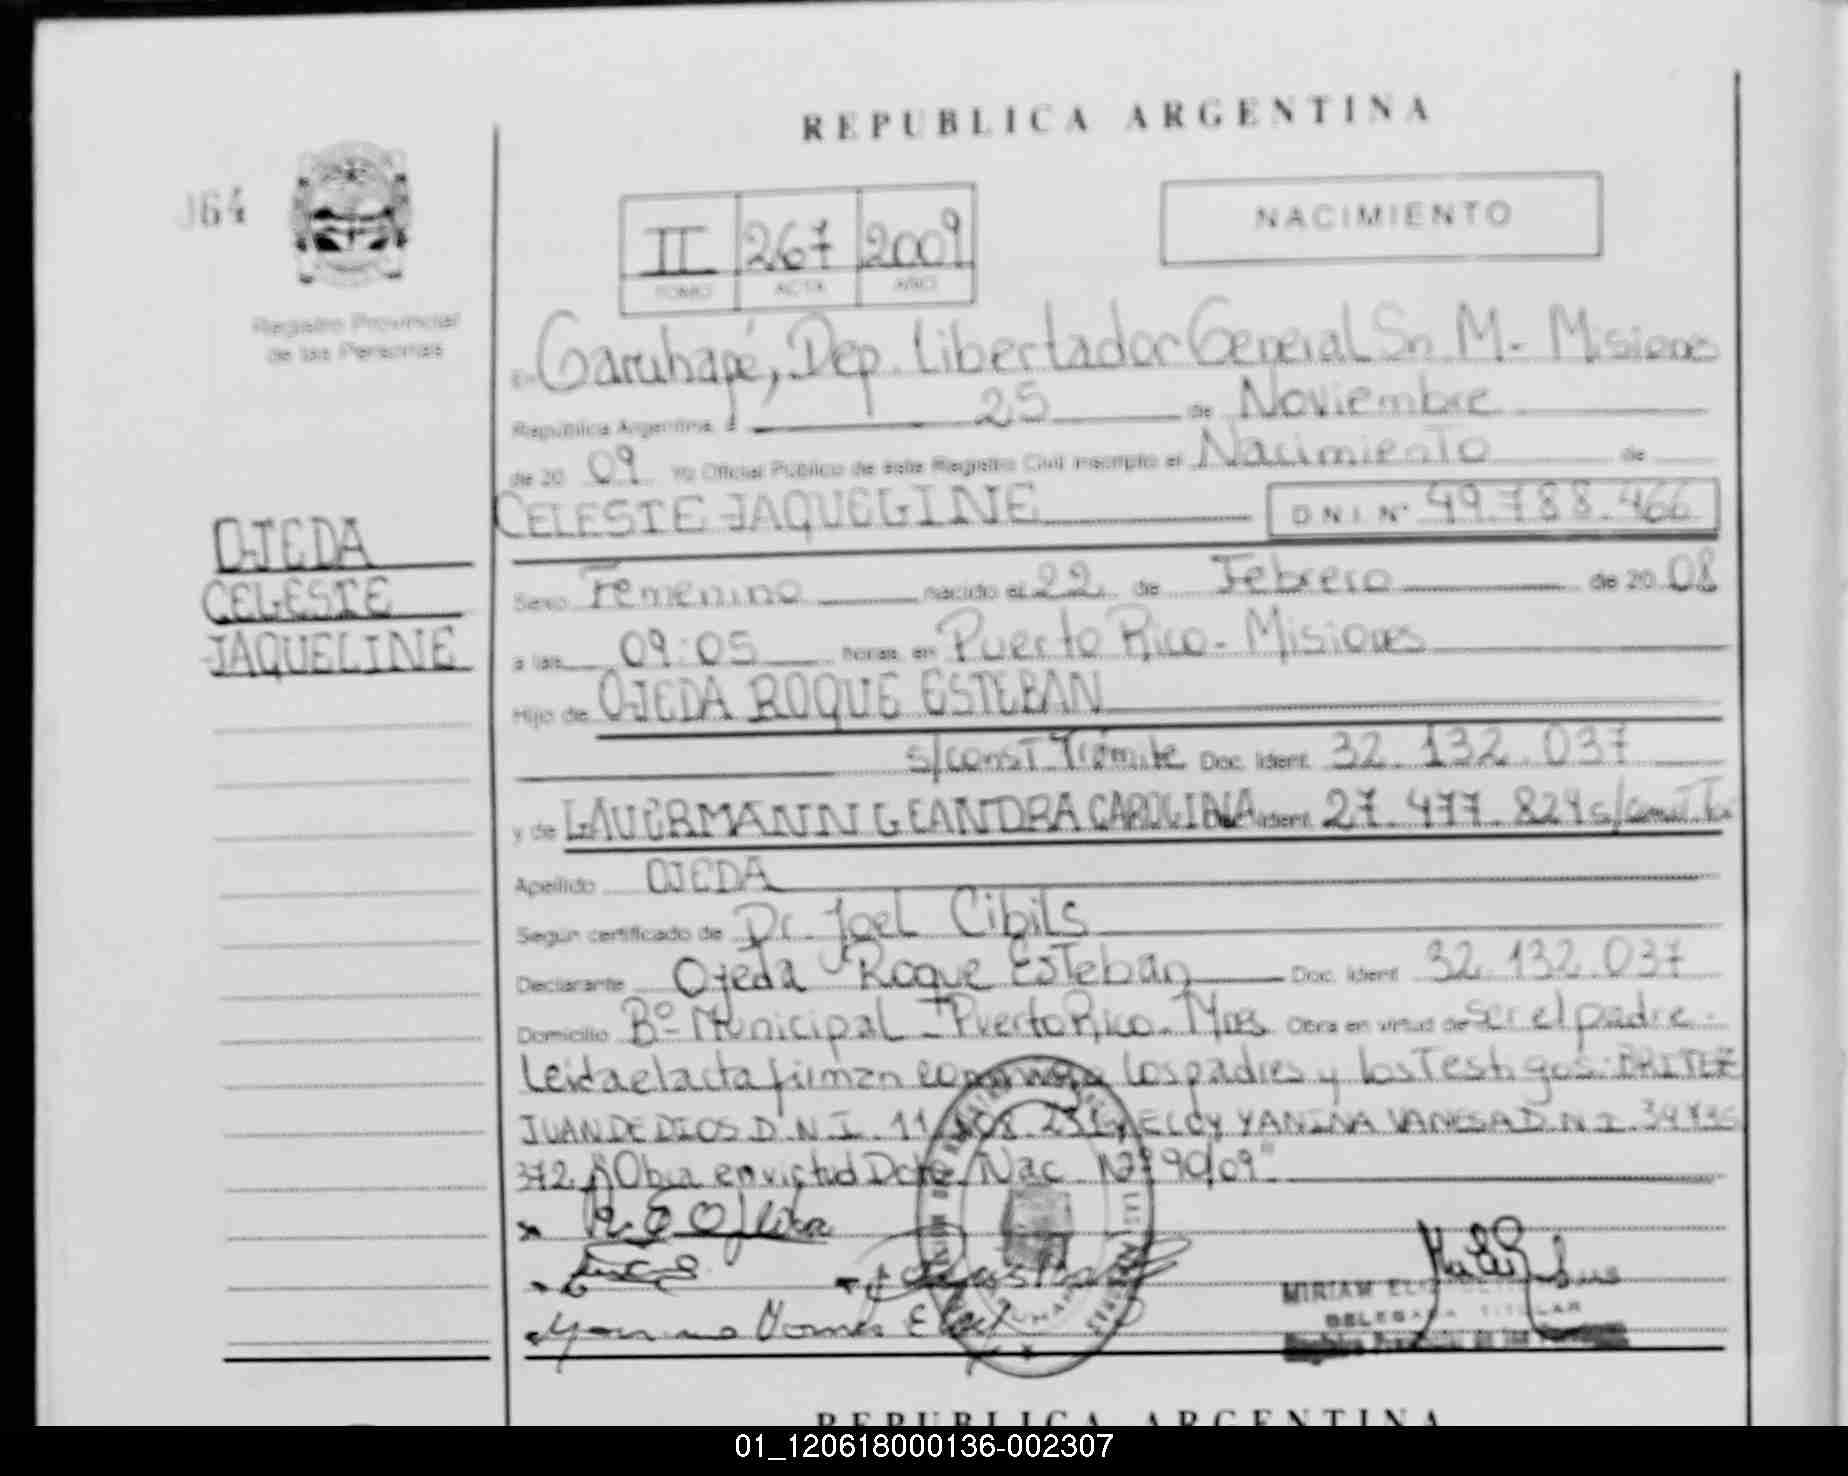 REPUBLICA ARGENTINA
164
NACIMIENTO
II 267 2009
TOMO ACTA AÑO
Registro Provincial
de las Personas
En Garuhapé, Dep. Libertador General Sn. M. - Misiones
República Argentina, a 25 de Noviembre
de 2009 Yo Oficial Público de este Registro Civil inscripto el Nacimiento de
CELESTE JAQUELINE D.N.I. Nº 49.788.466
OJEDA
CELESTE
JAQUELINE
Sexo Femenino nacido el 22 de Febrero de 2008
a las 09:05 horas en Puerto Rico - Misiones
Hijo de OJEDA ROQUE ESTEBAN
s/const Trámite Doc. Ident. 32.132.037
y de LAUERMANN LEANDRA CAROLINA Ident. 27.477.824 s/const. Tr.
Apellido OJEDA
Según certificado de Dr. Joel Cibils
Declarante Ojeda Roque Esteban Doc. Ident. 32.132.037
Domicilio Bº Municipal - Puerto Rico - Mnes Obra en virtud de ser el padre.
Leida el acta firman conmigo los padres y los Testigos: BRITEZ
JUAN DE DIOS D.N.I. 11. ELOY YANINA VANESA D.N.I.
372 "Obra en virtud Dcto. Nac. Nº 90/09"
R. E. Ojeda
Yanina Vanesa Eloy
MIRIAM
DELEGADA TITULAR
Registro Provincial de las Personas
REPUBLICA ARGENTINA
01_120618000136-002307